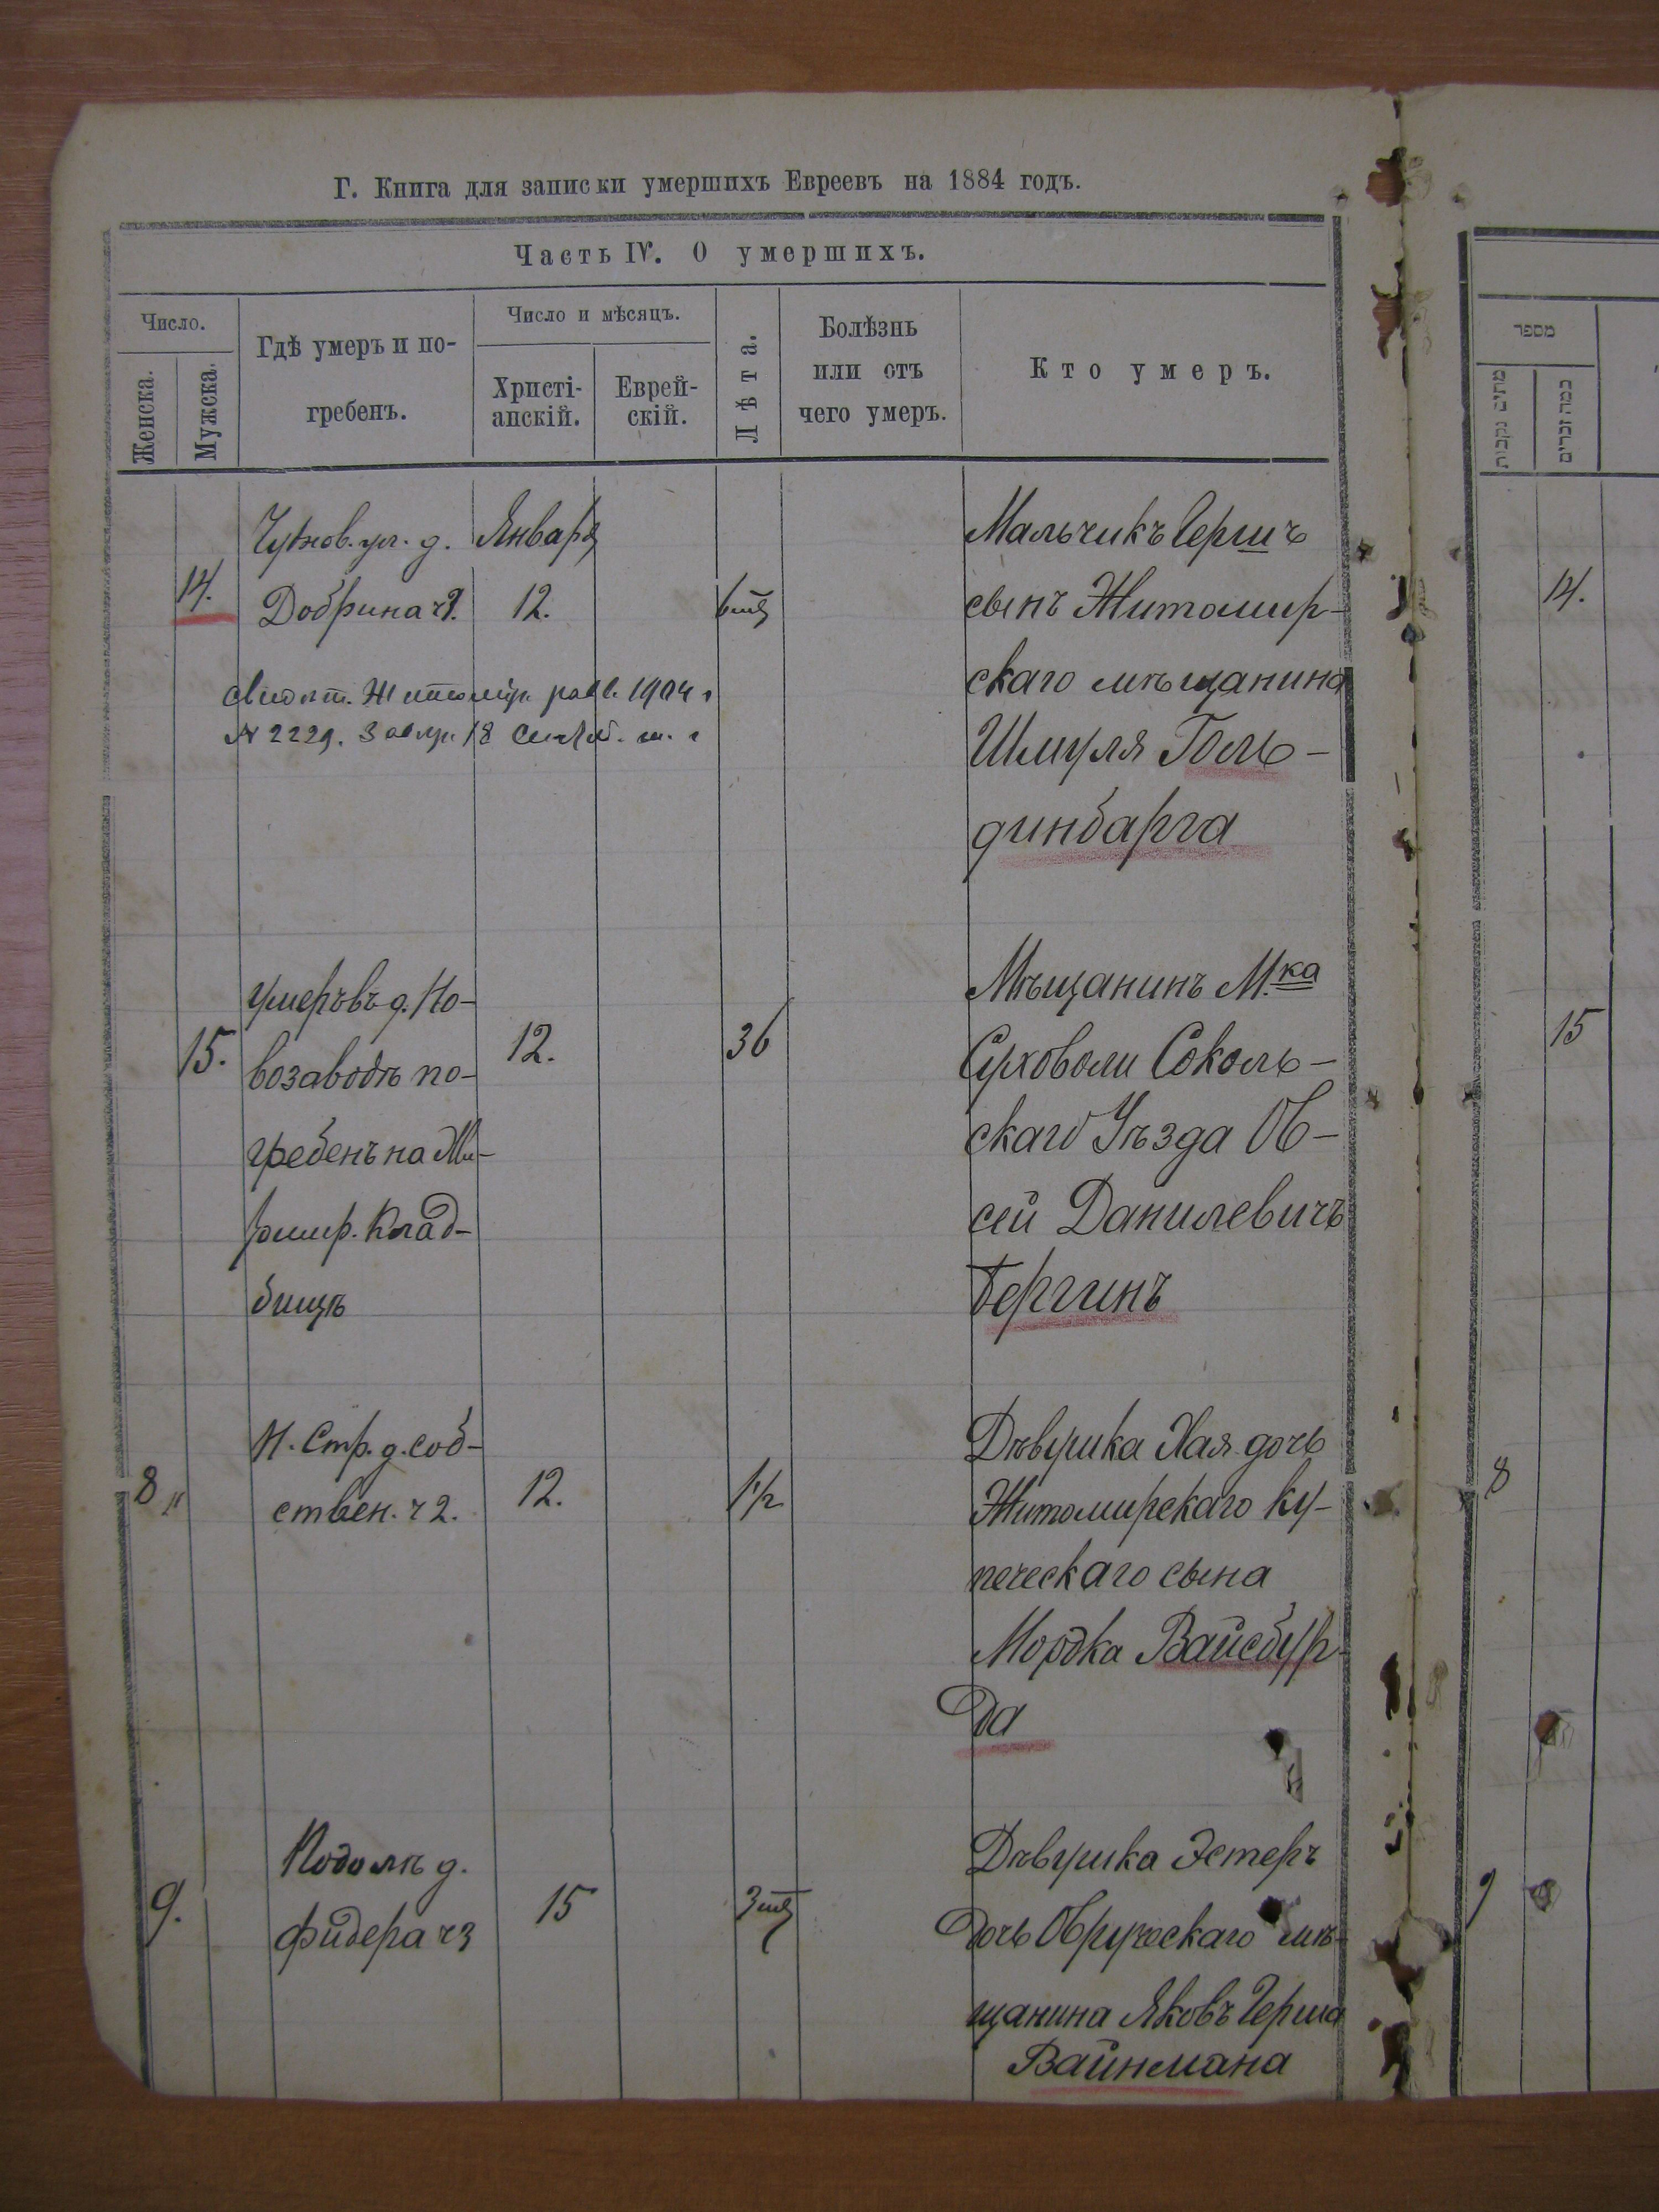 Г. Книга для записки умершихъ Евреевъ на 1884 годъ.
Часть IV. О умершихъ.
Число.
Женска.
Мужска.
Гдѣ умеръ и по-
гребенъ.
Число и мѣсяцъ.
Христі-
анскій.
Еврей-
скій.
Лѣта.
Болѣзнь
или отъ
чего умеръ.
Кто умеръ.
מספר
מתים נקבות
כמה זכרים
14.
Чуднов. ул. д.
Добрина ч.
Января
12.
Мальчикъ Гершъ
сынъ Житомир-
скаго мѣщанина
Шмуля Голь-
динбарга
14.
Житомір. 1904 г
№ 2229. 18
15.
умеръ въ д. Но-
возаводѣ по-
гребенъ на Жи-
томир. клад-
бищѣ
12.
36
Мѣщанинъ М.ка
Суховоли Соколь-
скаго Уѣзда Ов-
сей Данилевичъ
Бергинъ
15
8
Н. Стр. д. соб-
ствен. ч 2.
12.
1 1/2
Дѣвушка Хая дочь
Житомирскаго ку-
печескаго сына
Мордка Вайсбур-
да
8
9.
Подолѣ д.
Фидера ч 3
15
Дѣвушка Эстеръ
дочь Овручскаго мѣ-
щанина Яковъ Герша
Вайнмана
9